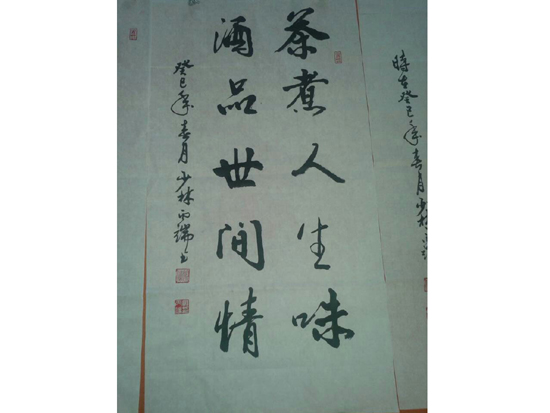 茶煮人生味
酒品世间情
癸巳年春月少林
時在癸巳年春月少林